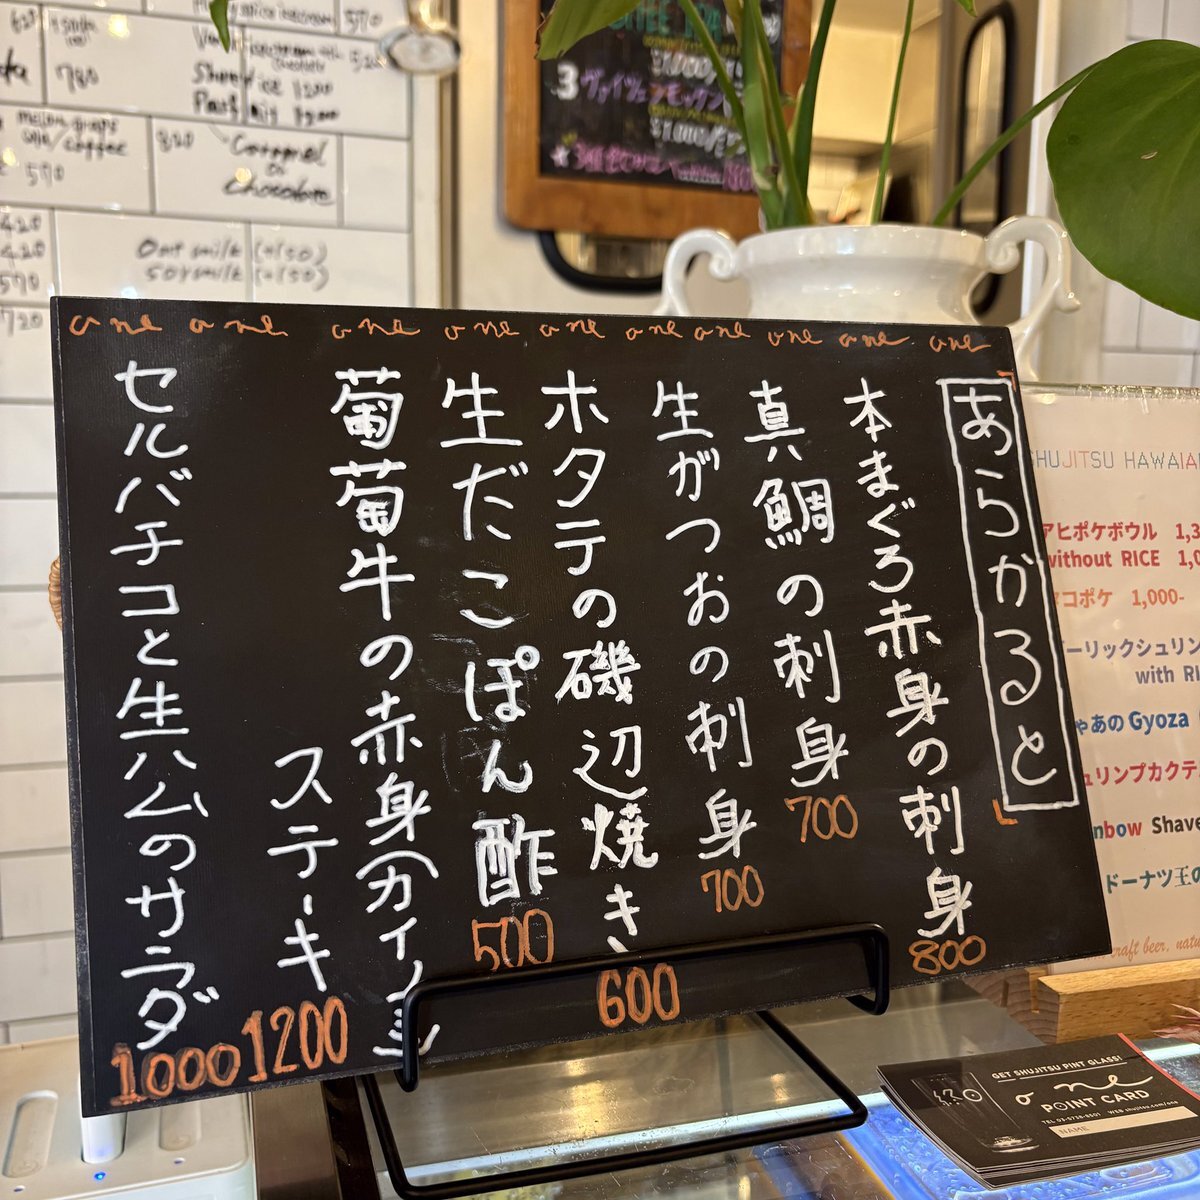 one one one one one one one one one one
あらかると
本まぐろ赤身の刺身
800
真鯛の刺身
700
生がつおの刺身
700
ホタテの磯辺焼き
600
生だこぽん酢
500
葡萄牛の赤身(カイノミ)
ステーキ
1200
セルバチコと生ハムのサラダ
1000
780
570
820
Caramel
or
Chocolate
Oat milk (+150)
soy milk (+150)
420
420
570
720
3 ヴァイツェン
SHUJITSU HAWAIIA
アヒポケボウル 1,3
without RICE 1,0
タコポケ 1,000-
ーリックシュリン
with RI
ゃあの Gyoza
ュリンプカクテ
nbow Shave
ドーナツ王の
craft beer, natu
GET SHUJITSU PINT GLASS!
one
POINT CARD
NAME